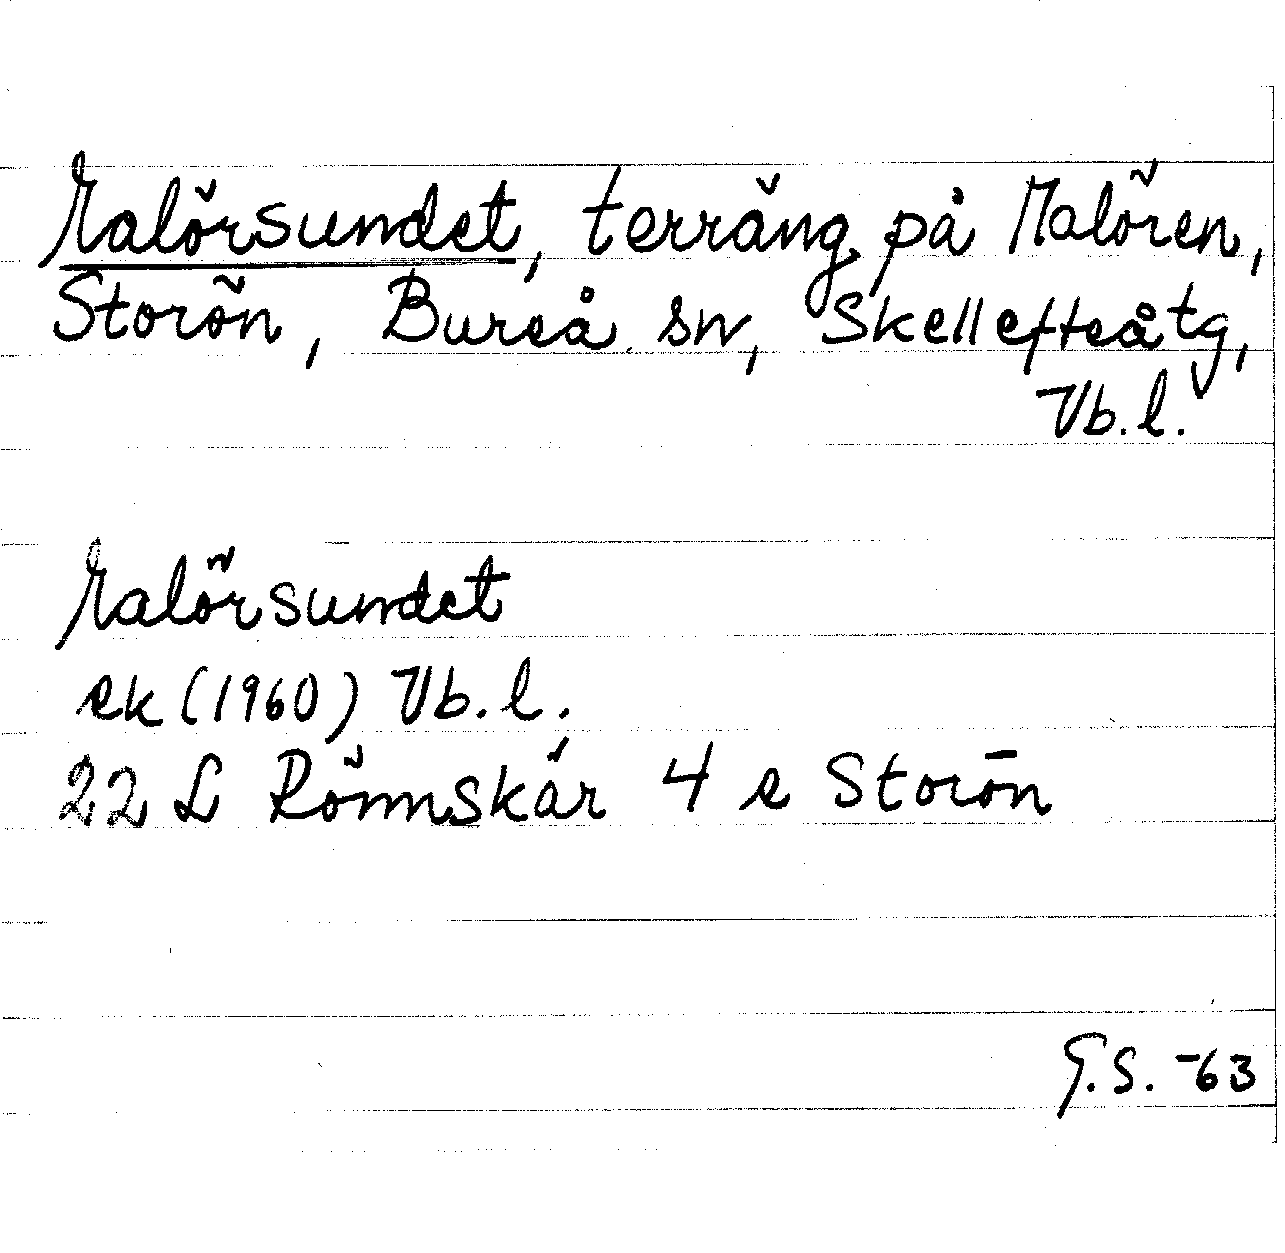 Malörsundet, terräng på Malören,
Storön, Bureå sn, Skellefteå tg,
Vb. l.
Malörsundet
ek (1960) Vb. l.
22 L Rönnskär 4 e Storön
G.S. -63